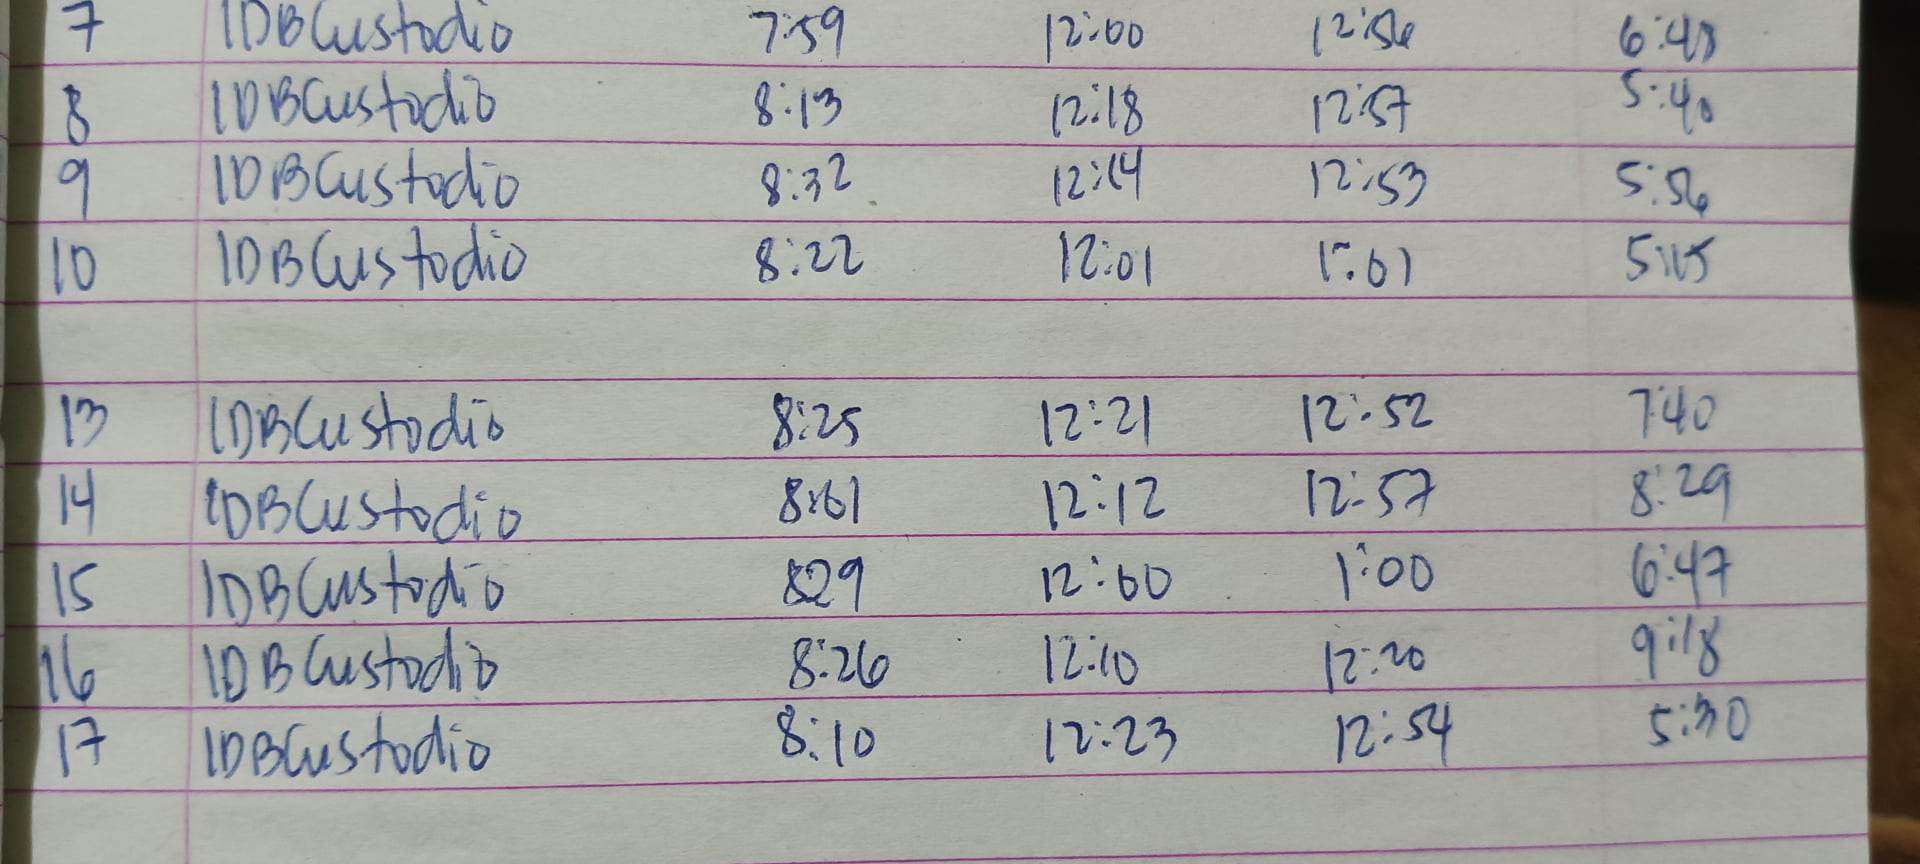 7 IDBCustodio 7:59 12:00 12:56 6:48
8 IDBCustodio 8:13 12:18 12:57 5:40
9 IDBCustodio 8:32 12:14 12:53 5:56
10 IDBCustodio 8:22 12:01 1:01 5:15
13 IDBCustodio 8:25 12:21 12:52 7:40
14 IDBCustodio 8:01 12:12 12:57 8:29
15 IDBCustodio 829 12:00 1:00 6:47
16 IDBCustodio 8:26 12:10 12:20 9:18
17 IDBCustodio 8:10 12:23 12:54 5:30